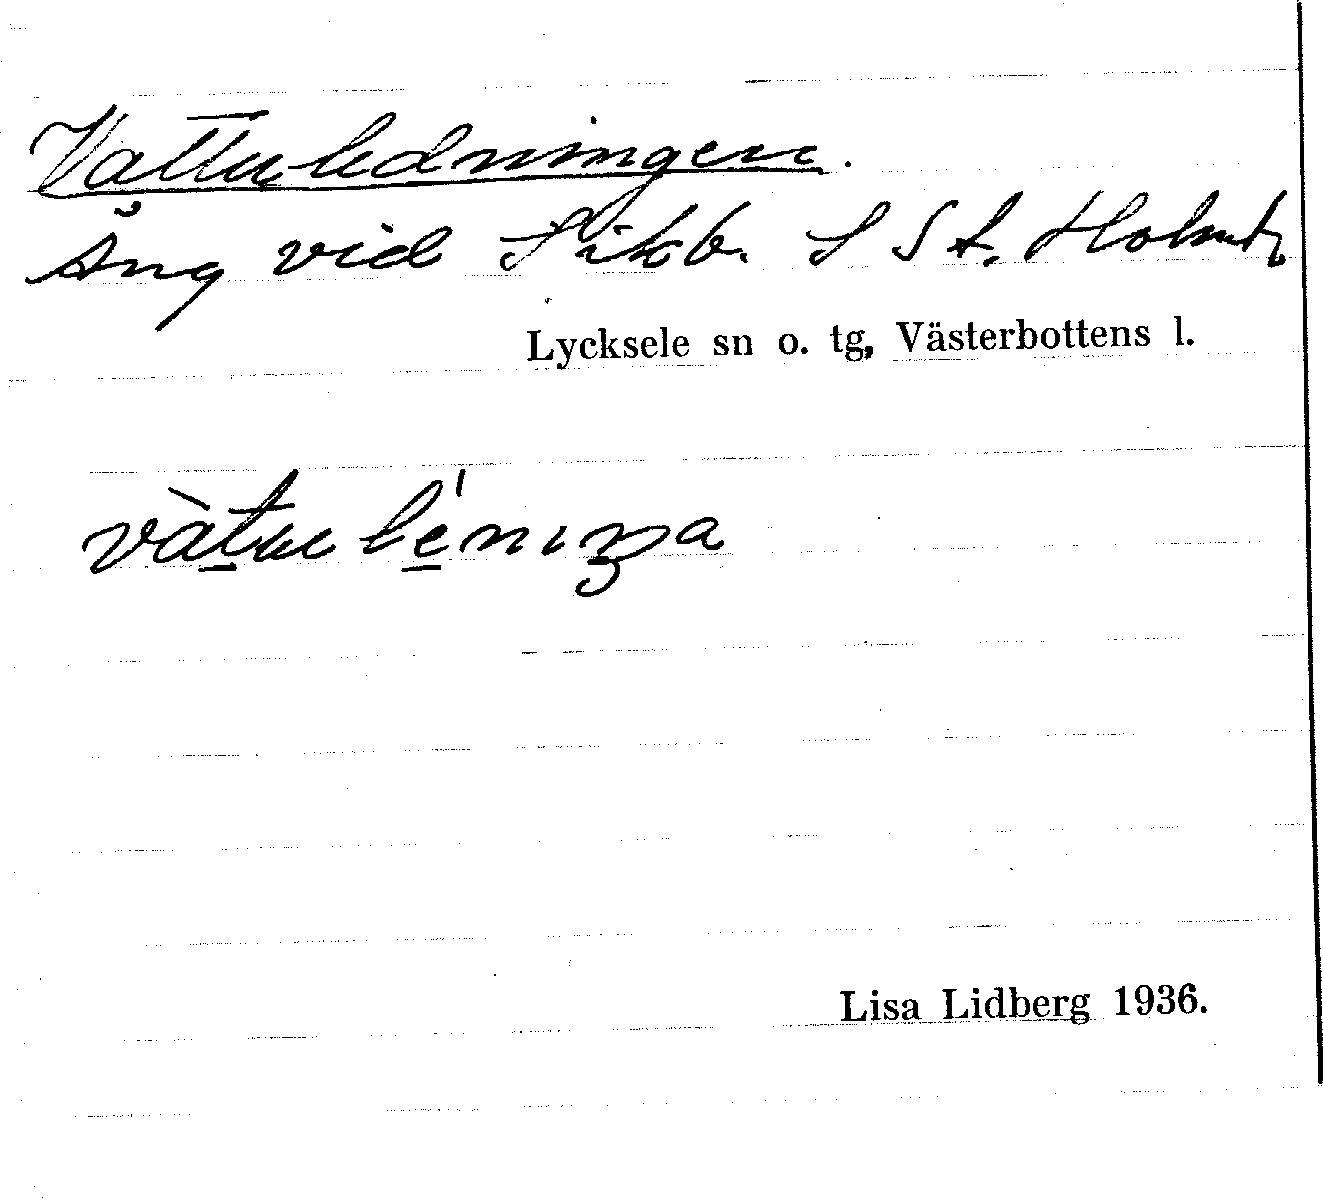 Vattuledningen.
Äng vid Sikb. S St. Holmtr
Lycksele sn o. tg, Västerbottens l.
vàtulénıŋa
Lisa Lidberg 1936.